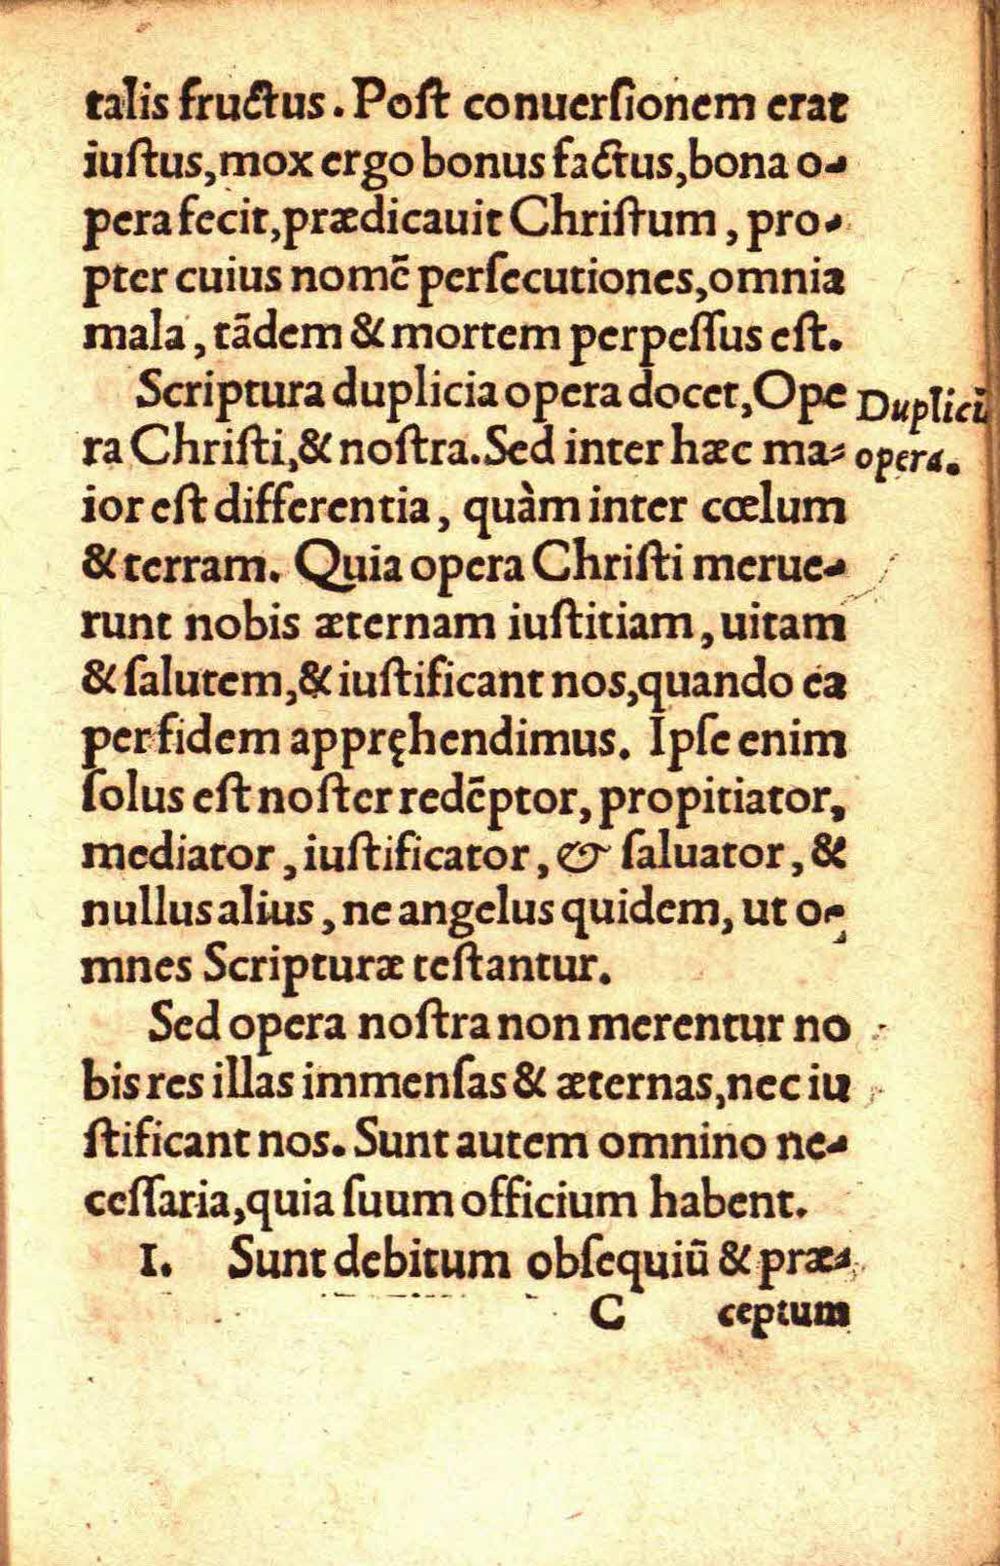 talis fructus. Post conuerſionem erat
iuſtus, mox ergo bonus factus, bona o-
pera fecit, prædicauit Chriſtum, pro-
pter cuius nomẽ perſecutiones, omnia
mala, tãdem & mortem perpeſſus eſt.
Scriptura duplicia opera docet, Ope
ra Chriſti, & noſtra. Sed inter hæc ma-
ior eſt differentia, quàm inter cœlum
& terram. Quia opera Chriſti merue-
runt nobis æternam iuſtitiam, uitam
& ſalutem, & iuſtificant nos, quando ea
per fidem appręhendimus. Ipſe enim
ſolus eſt noſter redẽptor, propitiator,
mediator, iuſtificator, & ſaluator, &
nullus alius, ne angelus quidem, ut o-
mnes Scripturæ teſtantur.
Sed opera noſtra non merentur no
bis res illas immenſas & æternas, nec iu
ſtificant nos. Sunt autem omnino ne-
ceſſaria, quia ſuum officium habent.
I. Sunt debitum obſequiũ & præ-
C ceptum
Duplici
opera.